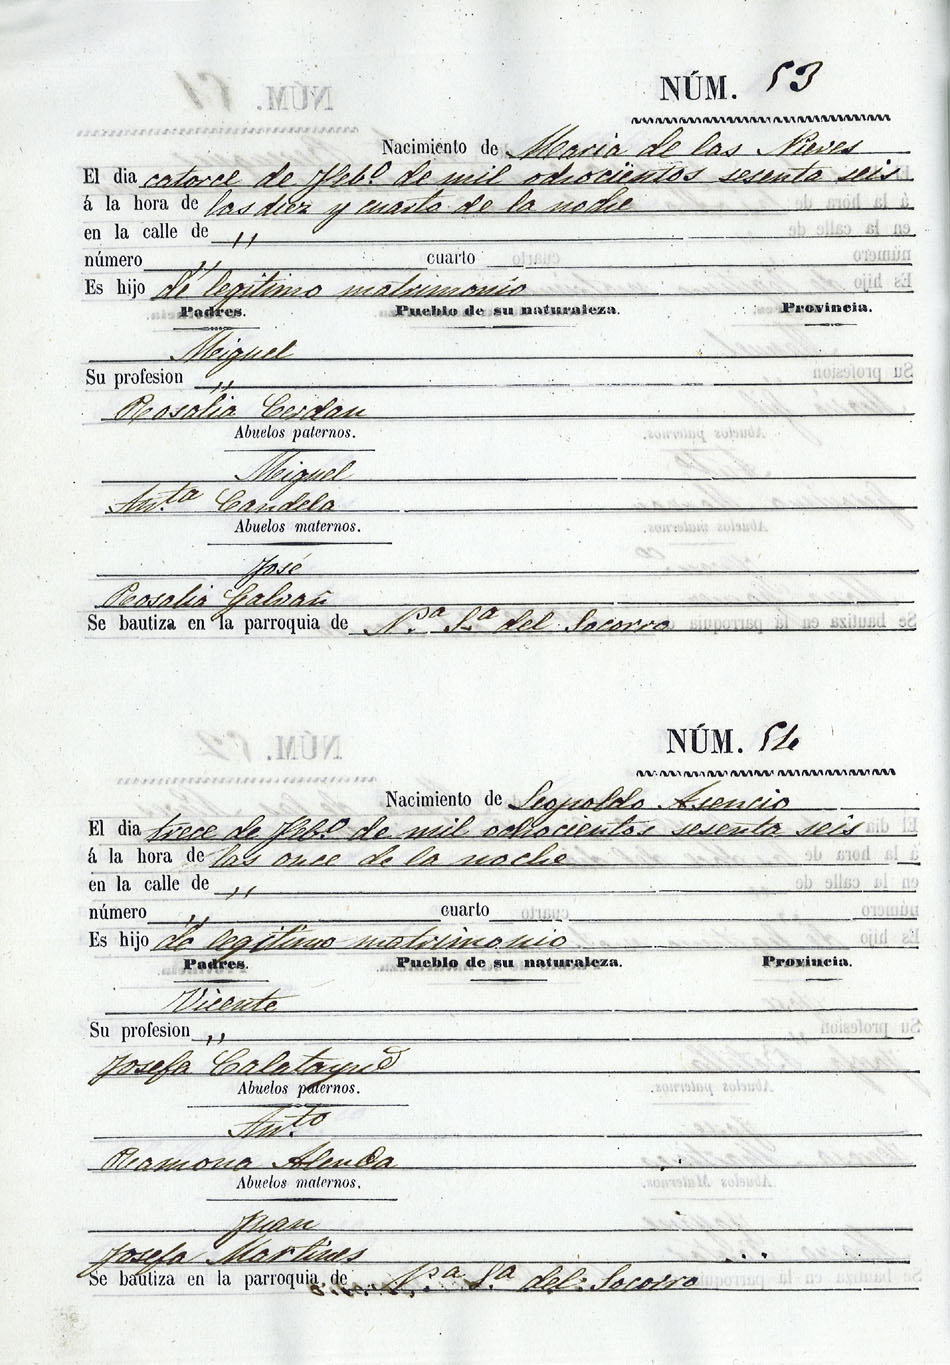 NÚM. 53
Nacimiento de Maria de las Nieves
El dia catorce de Feb.º de mil ochocientos sesenta seis
á la hora de las diez y cuarto de la noche
en la calle de ,,
número ,, cuarto
Es hijo de legitimo matrimonio
Padres. Pueblo de su naturaleza. Provincia.
Miguel
Su profesion ,,
Rosalia Cerdan
Abuelos paternos.
Miguel
Ant.ta Candela
Abuelos maternos.
José
Rosalia Galvañ
Se bautiza en la parroquia de N.ª S.ª del Socorro
NÚM. 54
Nacimiento de Leopoldo Asencio
El dia trece de Feb.º de mil ochocientos sesenta seis
á la hora de las once de la noche
en la calle de ,,
número ,, cuarto
Es hijo de legitimo matrimonio
Padres. Pueblo de su naturaleza. Provincia.
Vicente
Su profesion ,,
Josefa Calatayud
Abuelos paternos.
Ant.to
Ramona Alenda
Abuelos maternos.
Juan
Josefa Martines
Se bautiza en la parroquia de N.ª S.ª del Socorro